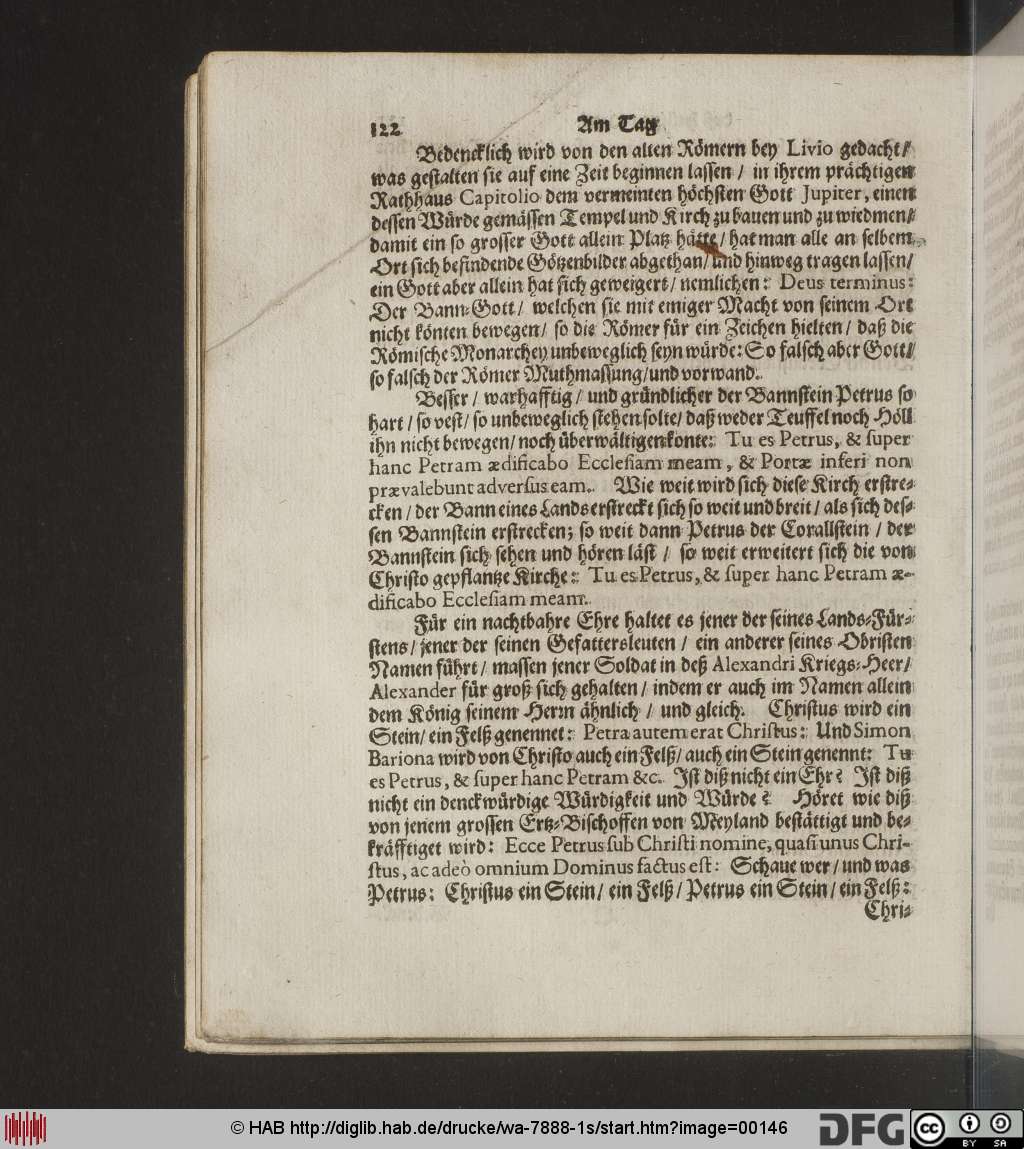 122 Am Tag
Bedencklich wird von den alten Römern bey Livio gedacht/
was gestalten sie auf eine Zeit beginnen lassen / in ihrem prächtigen
Rathhaus Capitolio dem vermeinten höchsten Gott Jupiter, einen
dessen Würde gemässen Tempel und Kirch zu bauen und zu wiedmen/
damit ein so grosser Gott allein Platz hätte/ hat man alle an selbem
Ort sich befindende Götzenbilder abgethan/ und hinweg tragen lassen/
ein Gott aber allein hat sich geweigert/ nemlichen: Deus terminus:
Der Bann-Gott/ welchen sie mit einiger Macht von seinem Ort
nicht könten bewegen/ so die Römer für ein Zeichen hielten/ daß die
Römische Monarchey unbeweglich seyn würde: So falsch aber Gott/
so falsch der Römer Muthmassung/ und vorwand.
Besser/ warhafftig/ und gründlicher der Bannstein Petrus so
hart/ so vest/ so unbeweglich stehen solte/ daß weder Teuffel noch Höll
ihn nicht bewegen/ noch überwältigen konte: Tu es Petrus, & ſuper
hanc Petram ædificabo Eccleſiam meam, & Portæ inferi non
prævalebunt adverſus eam. Wie weit wird sich diese Kirch erstre-
cken/ der Bann eines Lands erstreckt sich so weit und breit/ als sich des-
sen Bannstein erstrecken; so weit dann Petrus der Corallstein / der
Bannstein sich sehen und hören läst / so weit erweitert sich die von
Christo gepflantzte Kirche: Tu es Petrus, & ſuper hanc Petram æ-
dificabo Eccleſiam meam.
Für ein nachtbahre Ehre haltet es jener der seines Lands-Für-
stens/ jener der seinen Gefattersleuten / ein anderer seines Obristen
Namen führt/ massen jener Soldat in deß Alexandri Kriegs-Heer/
Alexander für groß sich gehalten/ indem er auch im Namen allein
dem König seinem Herrn ähnlich / und gleich. Christus wird ein
Stein/ ein Felß genennet: Petra autem erat Chriſtus: Und Simon
Bariona wird von Christo auch ein Felß/ auch ein Stein genennt: Tu
es Petrus, & ſuper hanc Petram &c. Ist diß nicht ein Ehr? Ist diß
nicht ein denckwürdige Würdigkeit und Würde? Höret wie diß
von jenem grossen Ertz-Bischoffen von Meyland bestättigt und be-
kräfftiget wird: Ecce Petrus ſub Chriſti nomine, quaſi unus Chri-
ſtus, ac adeò omnium Dominus factus eſt: Schaue wer/ und was
Petrus: Christus ein Stein/ ein Felß/ Petrus ein Stein/ ein Felß:
Chri-
© HAB http://diglib.hab.de/drucke/wa-7888-1s/start.htm?image=00146
DFG
cc BY SA